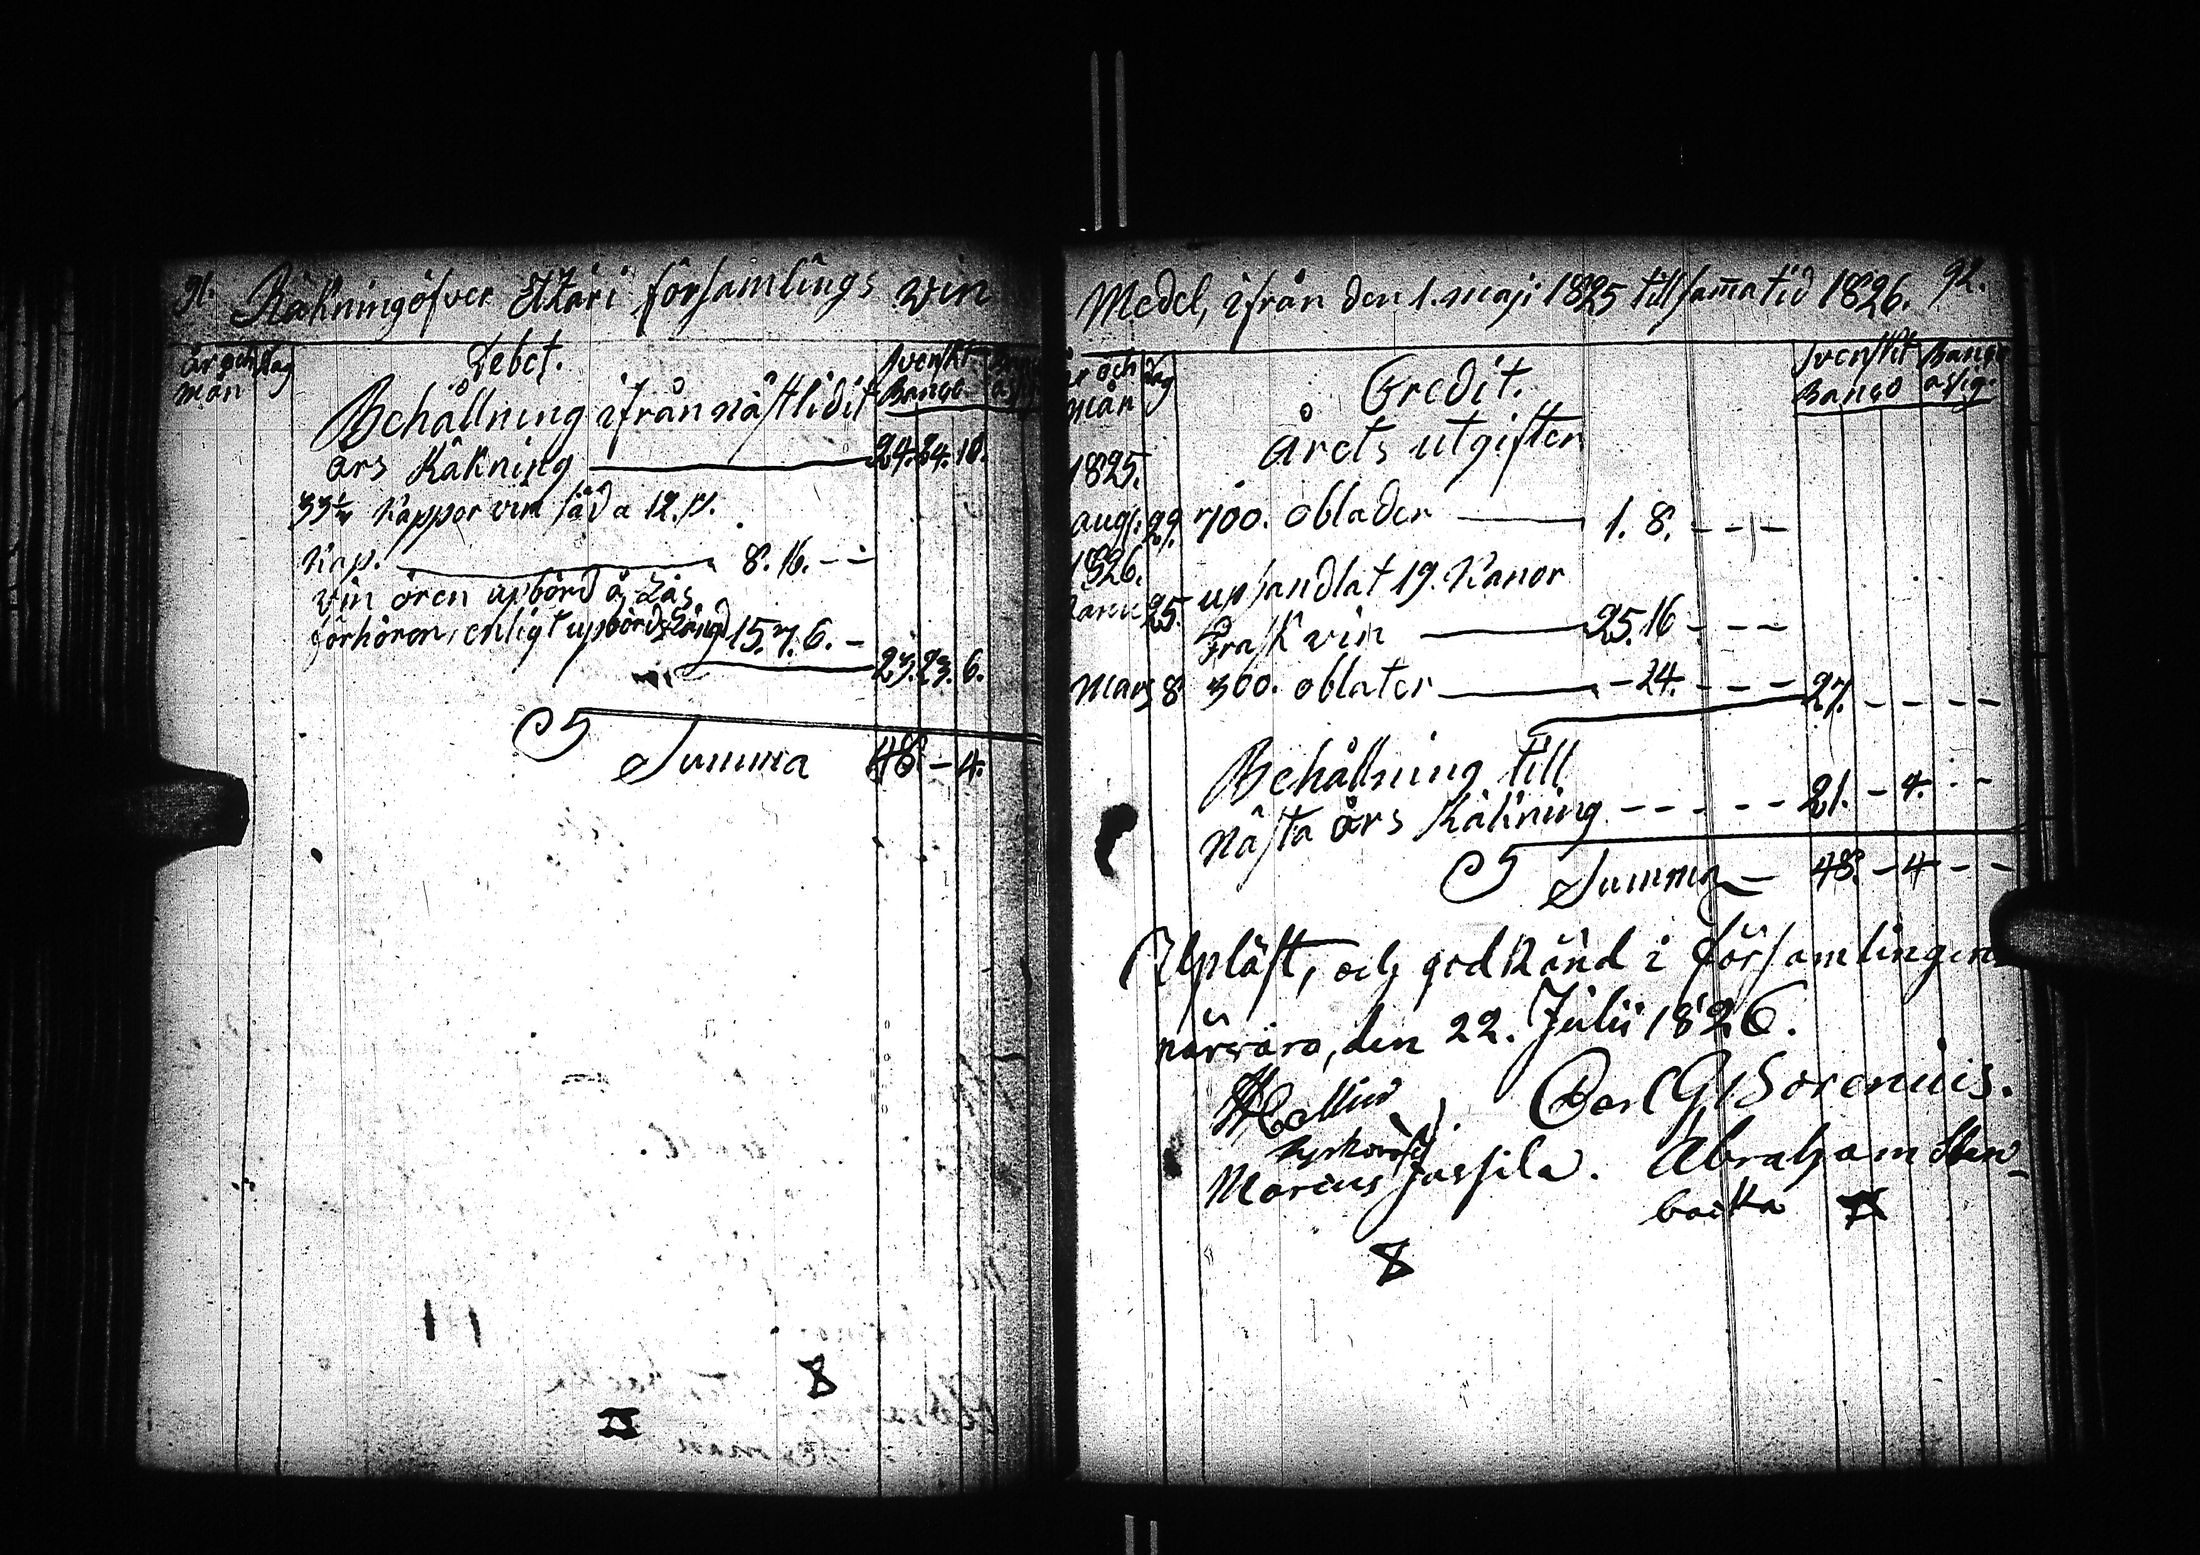 91. Räkning öfver Ikari församlings vin
år och dag
mån
Debet.
Svenskt
Banco.
Behållning ifrån nästlidit
års Räkning 24. 24. 10.
33½ kappor vin säd a 12. rs.
kap. 8. 16. - -
vin ören upbörd å Läs
förhören, enligt upbördslängd 15. 7. 6. -
23. 23. 6.
Summa 48. - 4.
8
Medel, ifrån den 1. maji 1825 till samma tid 1826. 92.
år och dag
mån
Credit.
Svenskt Banco
Banco assig.
Årets utgifter
1825.
aug. 29. 700. oblader 1. 8. - - -
1826.
25. uphandlat 19. Kanor
Frask vin 25. 16 - - -
Mars 8 300. oblater - 24. - - - 27. - - - - -
Behållning till
nästa års Räkning - - - - - 21. - 4. - -
Summa - 48. - 4 - -
Upläst, och godkänd i församlingens
närvaro, den 22. Julii 1826.
Carl G. Borenius.
Marcus Jussila. Abraham Sten-
backa
8